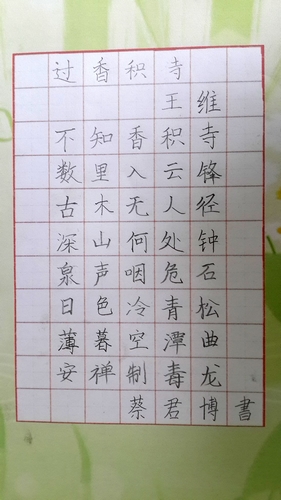 过香积寺
王维
不知香积寺
数里入云锋
古木无人径
深山何处钟
泉声咽危石
日色冷青松
薄暮空潭曲
安禅制毒龙
蔡君博書